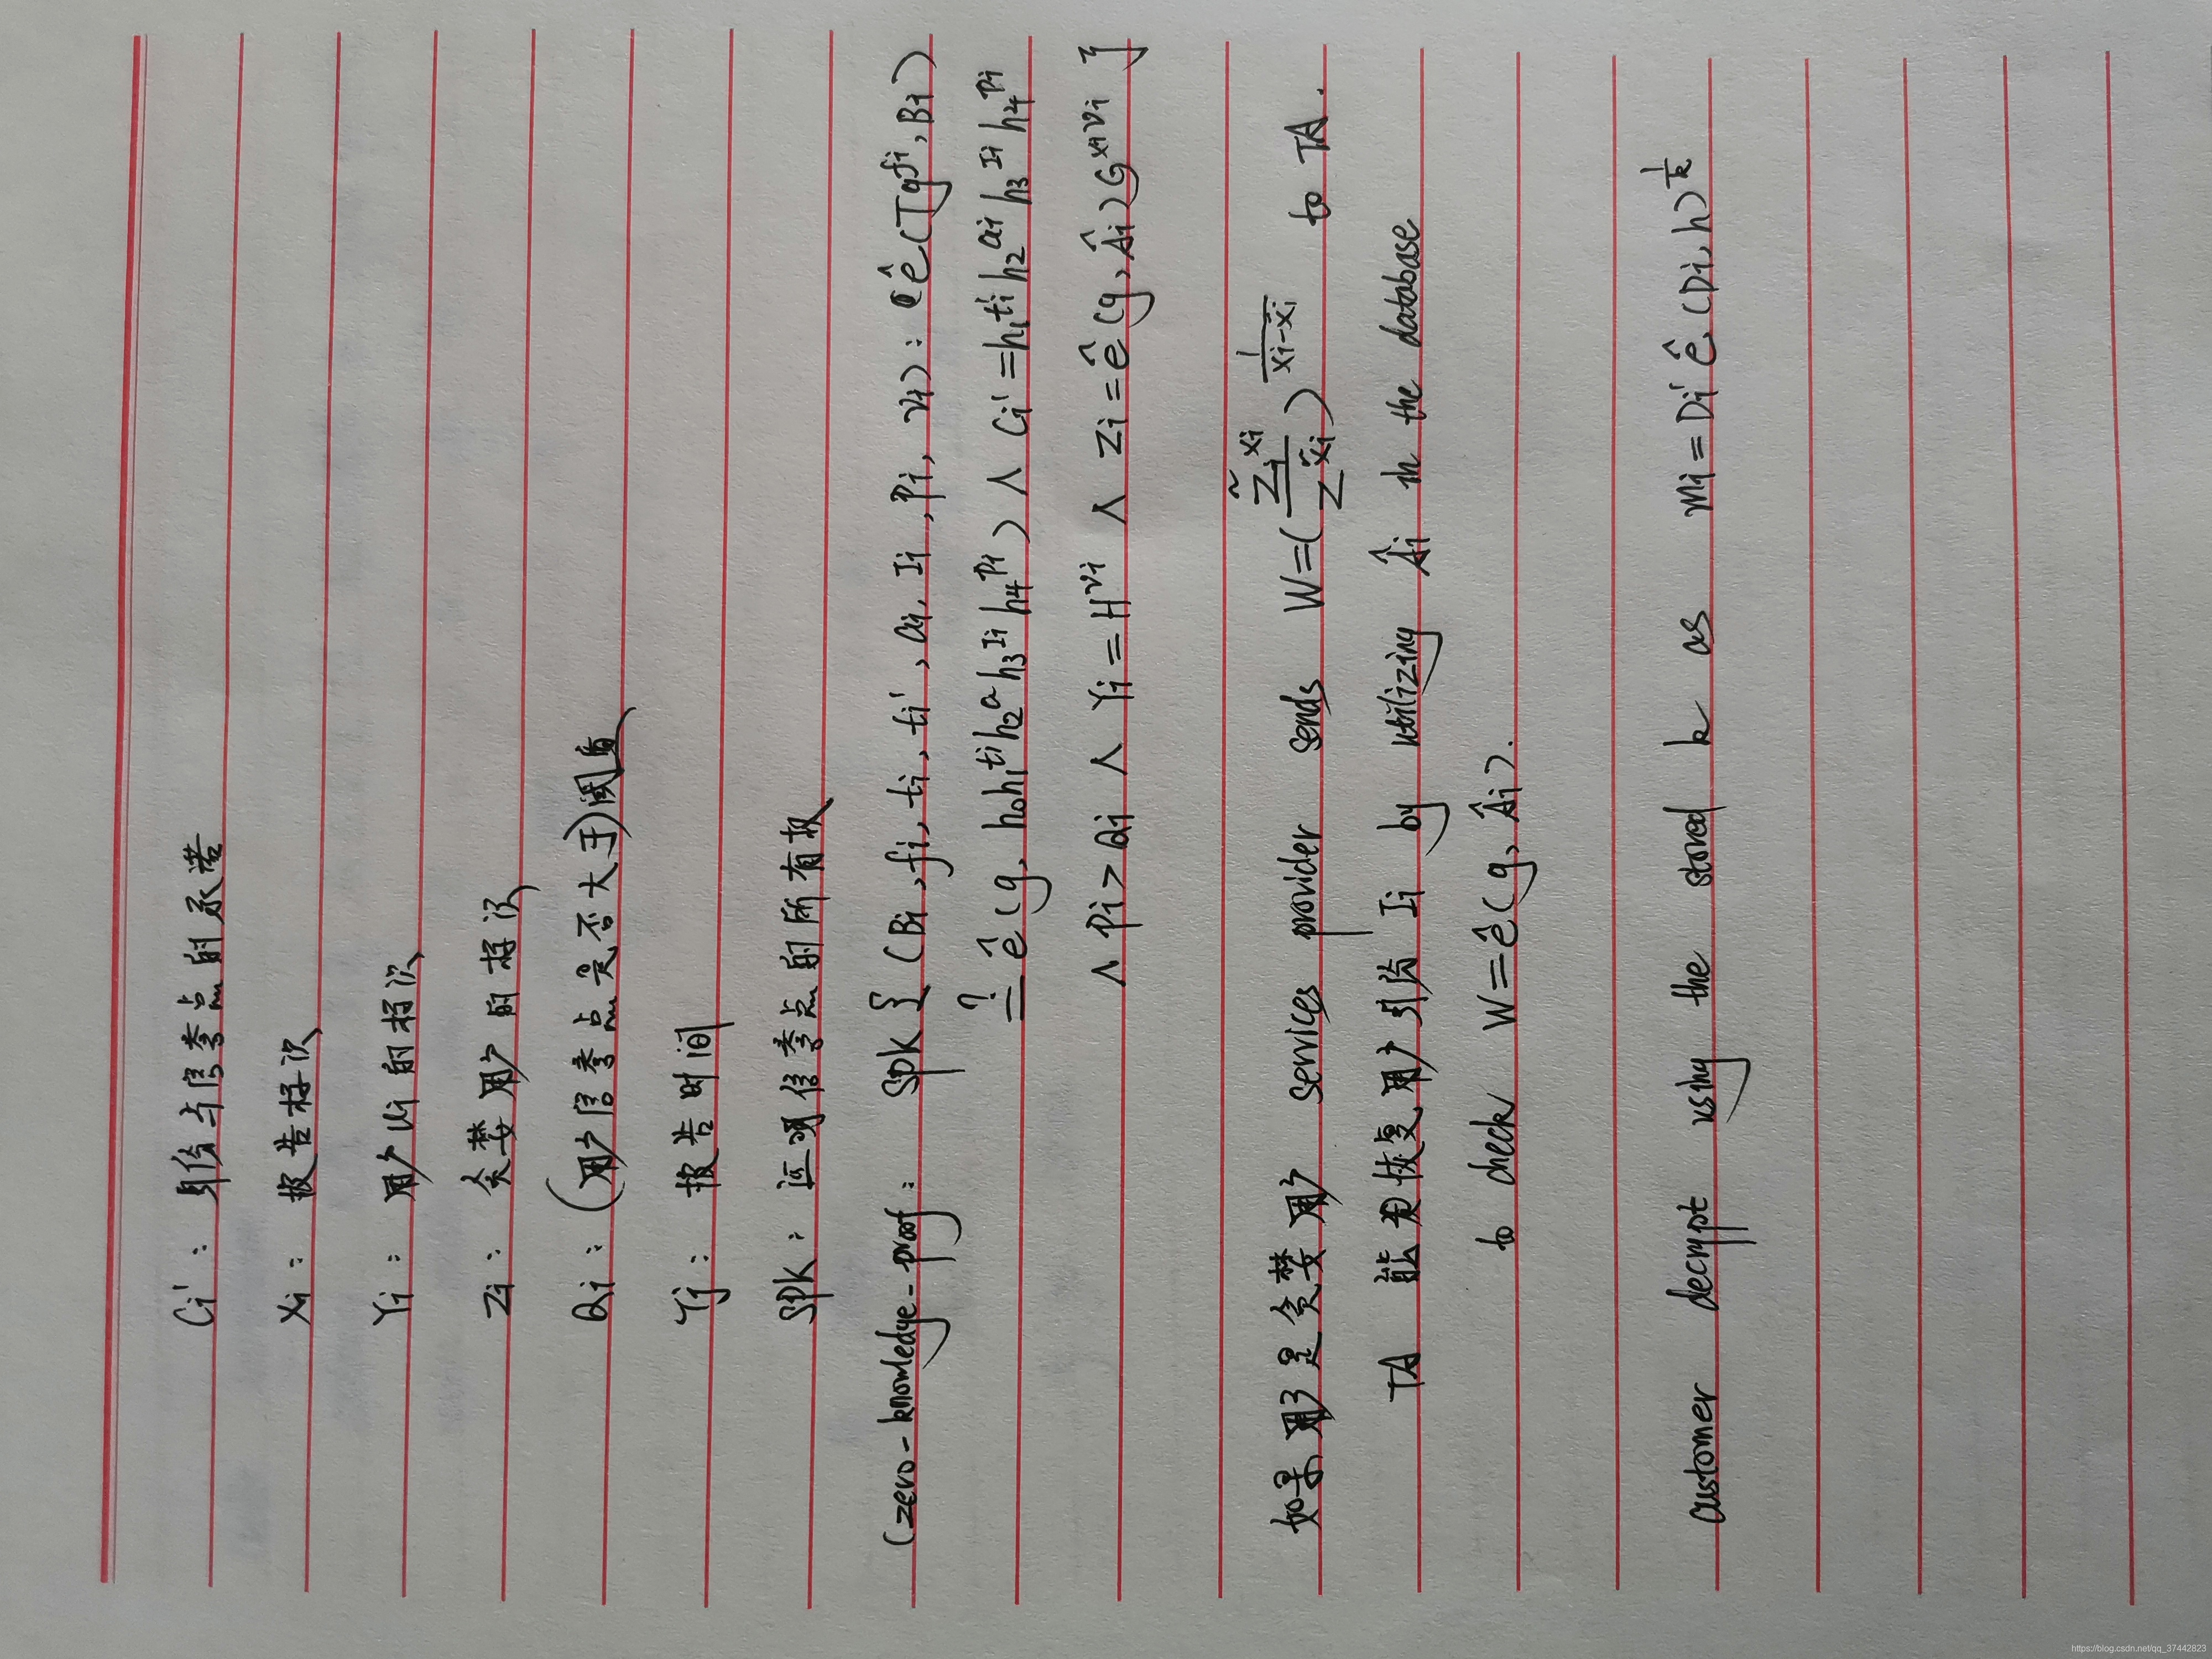 Ci' : 身份与信誉点的承诺
Xi : 报告标识
Yi : 用户Ui的标识
Zi : 贪婪用户的标识
Qi : (用户信誉点是否大于)阈值
Tj : 报告时间
SPK : 证明信誉点的所有权
(zero-knowledge-proof : SPK { (Bi, fi, ti, ti', ai, Ii, Pi, vi) : ê(Tg^fi, Bi)
≟ ê(g, h0h1^ti h2^a h3^Ii h4^Pi) ∧ Ci' = h1^ti' h2^ai h3^Ii h4^Pi
∧ Pi > Qi ∧ Yi = H^vi ∧ Zi = ê(g, Âi)G^xivi }
如果用户是贪婪用户 services provider sends W = (Z̃i^xi / Z^x̃i)^(1/(xi-x̃i)) to TA.
TA 能恢复用户身份 Ii by utilizing Âi in the database
to check W = ê(g, Âi).
customer decrypt using the stored k as mi = Di' ê(Di, h)^(1/k)
https://blog.csdn.net/qq_37442823